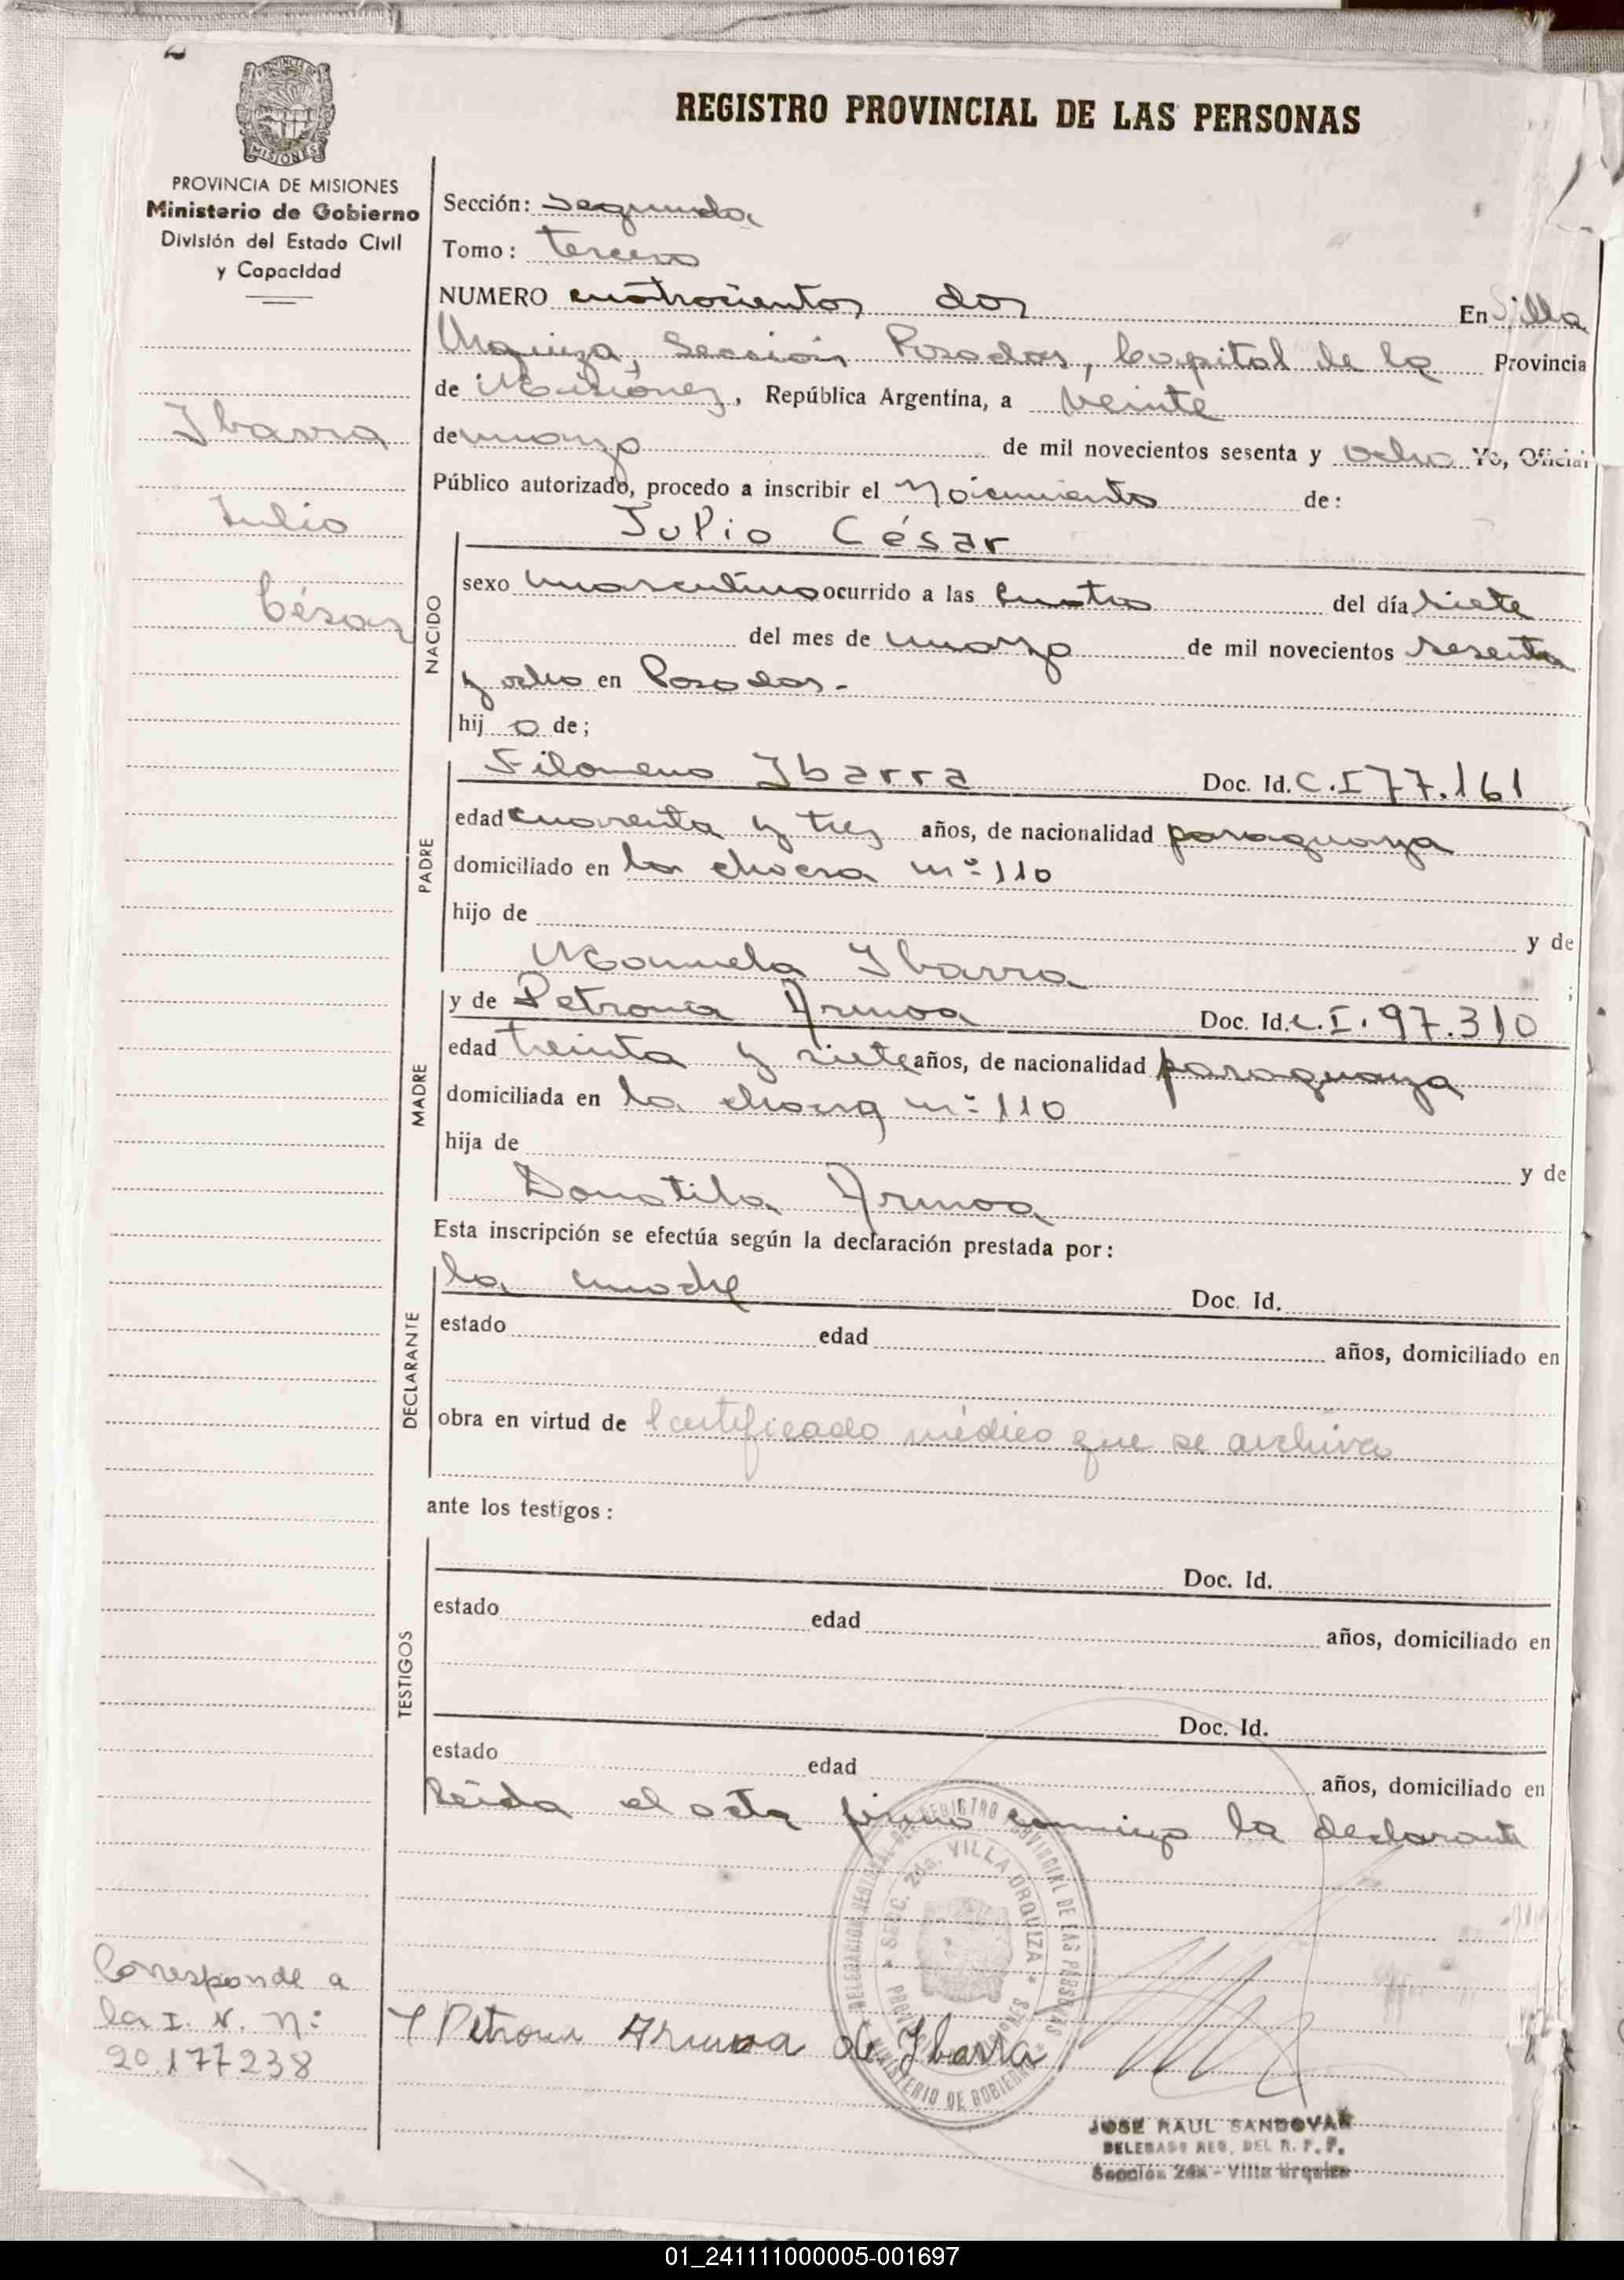 REGISTRO PROVINCIAL DE LAS PERSONAS
MISIONES
PROVINCIA DE MISIONES
Ministerio de Gobierno
División del Estado Civil
y Capacidad
Ibarra
Julio
César
Sección: Segunda
Tomo: tercero
NUMERO cuatrocientos dos En Villa
Urquiza, Sección Posadas, Capital de la Provincia
de Misiones, República Argentina, a veinte
de marzo de mil novecientos sesenta y ocho Yo, Oficial
Público autorizado, procedo a inscribir el Nacimiento de:
NACIDO
Julio César
sexo masculino ocurrido a las cuatro del día siete
del mes de marzo de mil novecientos sesenta
y ocho en Posadas.-
hij o de;
PADRE
Filomeno Ibarra Doc. Id. C.I 77.161
edad cuarenta y tres años, de nacionalidad paraguaya
domiciliado en la chacra nº 110
hijo de y de
Manuela Ibarra ;
MADRE
y de Petrona Armoa Doc. Id. C.I. 97.310
edad treinta y siete años, de nacionalidad paraguaya
domiciliada en la chacra nº 110
hija de y de
Donatila Armoa
Esta inscripción se efectúa según la declaración prestada por:
DECLARANTE
la madre Doc. Id.
estado edad años, domiciliado en
obra en virtud de Certificado médico que se archiva
ante los testigos:
TESTIGOS
Doc. Id.
estado edad años, domiciliado en
Doc. Id.
estado edad años, domiciliado en
Leída el acta firma conmigo la declarante
SECC. 2da. VILLA URQUIZA
MINISTERIO DE GOBIERNO
Corresponde a
la I. N. Nº
20.177238
Petrona Armoa de Ibarra
JOSE RAUL SANDOVAL
DELEGADO REG. DEL R. P. P.
Sección 2da - Villa Urquiza
01_241111000005-001697